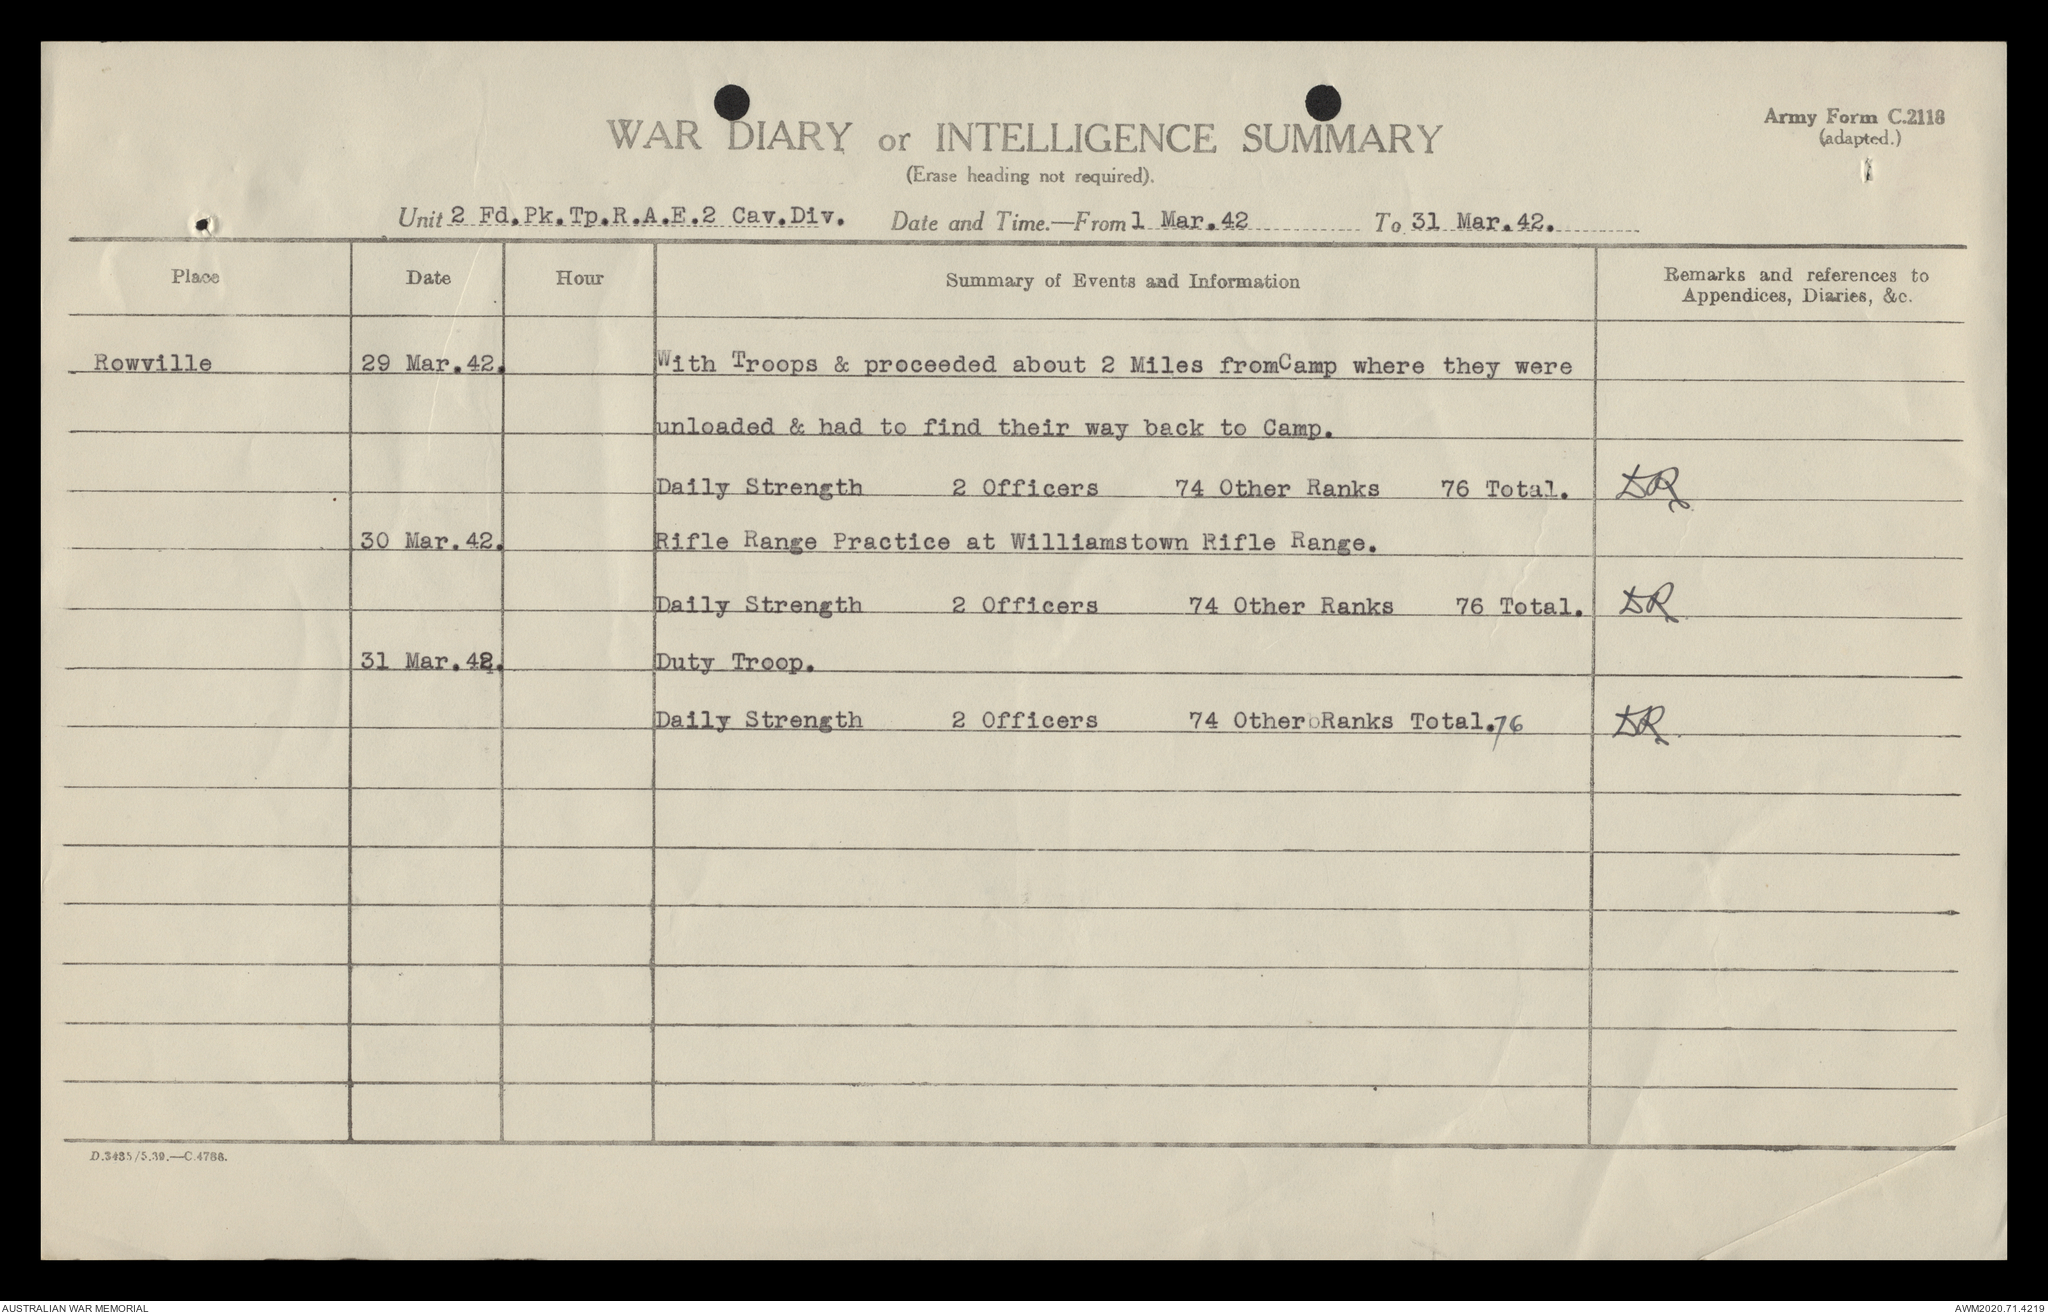 WAR DIARY or INTELLIGENCE SUMMARY
(Erase heading not required).
Army Form C.2118
(adapted.)
Unit 2 Fd.Pk.Tp.R.A.E.2 Cav.Div. Date and Time.—From 1 Mar.42 To 31 Mar.42.
Place Date Hour Summary of Events and Information Remarks and references to
Appendices, Diaries, &c.
Rowville 29 Mar.42. With Troops & proceeded about 2 Miles fromCamp where they were
unloaded & had to find their way back to Camp.
Daily Strength 2 Officers 74 Other Ranks 76 Total. DR
30 Mar.42. Rifle Range Practice at Williamstown Rifle Range.
Daily Strength 2 Officers 74 Other Ranks 76 Total. DR
31 Mar.42. Duty Troop.
Daily Strength 2 Officers 74 Other Ranks Total.76 DR
D.3435/5.39.—C.4788.
AUSTRALIAN WAR MEMORIAL
AWM2020.71.4219